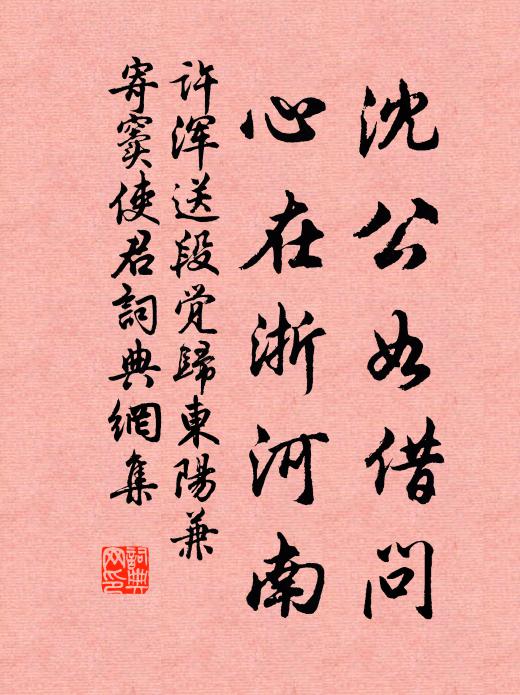 沈公如借问
心在浙河南
许浑送段觉歸東陽兼
寄窦使君詞典網集
詞典
网印